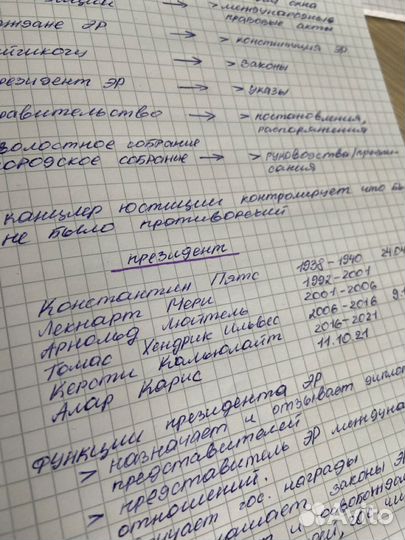 > международные
правовые акты
ждане ЭР → > конституция ЭР
йгикогу → > законы
резидент ЭР → > указы
равительство → > постановления,
распоряжения
волостное собрание
ородское собрание → > руководства/предпи-
сания
канцлер юстиции контролирует что бы
не было противоречий
президент
Константин Пятс 1938-1940 24.04
Леннарт Мери 1992-2001
Арнольд Рюйтель 2001-2006
Тоомас Хендрик Ильвес 2006-2016
Керсти Кальюлайд 2016-2021
Алар Карис 11.10.21
Функции президента ЭР
> назначает и отзывает дипло
представителей
> представитель ЭР междуна
отношений.
учает гос. награды
шает законы Э
Avito